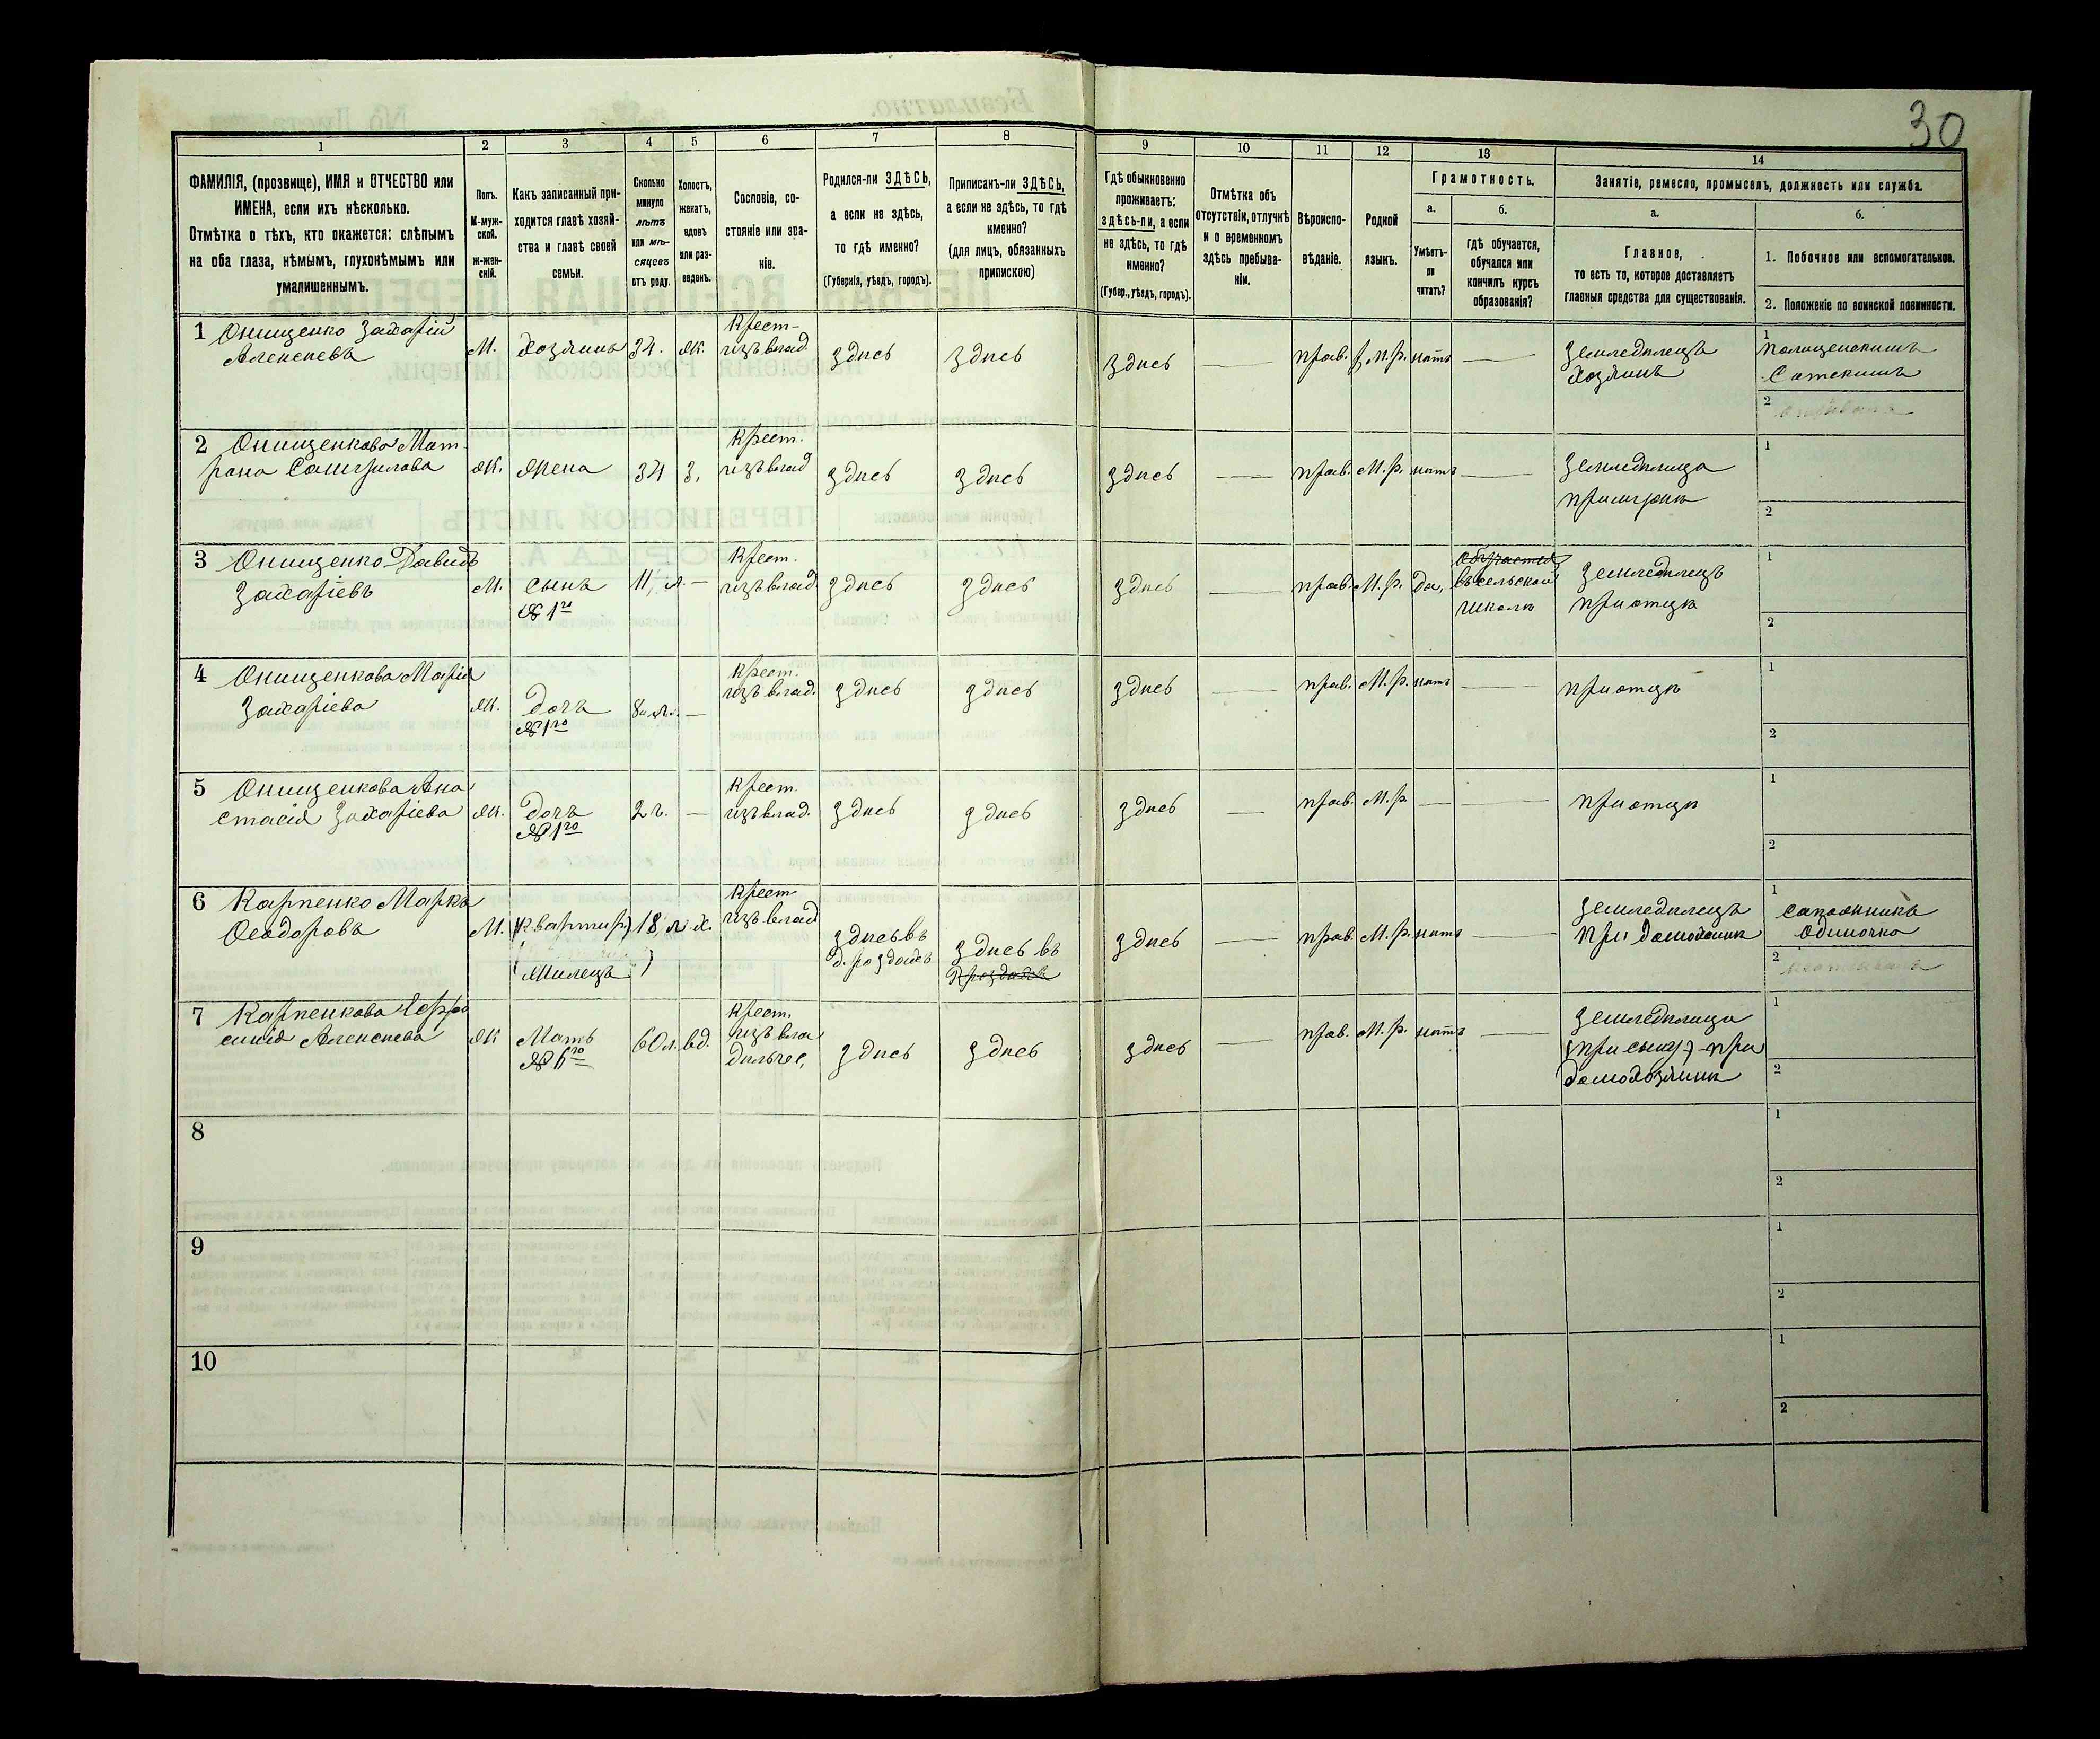 30
1
2
3
4
5
6
7
8
9
10
11
12
13
14
ФАМИЛІЯ, (прозвище), ИМЯ и ОТЧЕСТВО или
ИМЕНА, если ихъ нѣсколько.
Отмѣтка о тѣхъ, кто окажется: слѣпымъ
на оба глаза, нѣмымъ, глухонѣмымъ или
умалишеннымъ.
Полъ.
М-муж-
ской.
ж-жен-
скій.
Какъ записанный при-
ходится главѣ хозяй-
ства и главѣ своей
семьи.
Сколько
минуло
лѣтъ
или мѣ-
сяцевъ
отъ роду.
Холостъ,
женатъ,
вдовъ
или раз-
веденъ.
Сословіе, со-
стояніе или зва-
ніе.
Родился-ли ЗДѢСЬ,
а если не здѣсь,
то гдѣ именно?
(Губернія, уѣздъ, городъ).
Приписанъ-ли ЗДѢСЬ,
а если не здѣсь, то гдѣ
именно?
(для лицъ, обязанныхъ
припискою)
Гдѣ обыкновенно
проживаетъ:
здѣсь-ли, а если
не здѣсь, то гдѣ
именно?
(Губер., уѣздъ, городъ).
Отмѣтка объ
отсутствіи, отлучкѣ
и о временномъ
здѣсь пребыва-
ніи.
Вѣроиспо-
вѣданіе.
Родной
языкъ.
Грамотность.
а.
Умѣетъ-
ли
читать?
б.
гдѣ обучается,
обучался или
кончилъ курсъ
образованія?
Занятіе, ремесло, промыселъ, должность или служба.
а.
Главное,
то есть то, которое доставляетъ
главныя средства для существованія.
б.
1. Побочное или вспомогательное.
2. Положеніе по воинской повинности.
1 Онищенко Захарій
Алексѣевъ
М.
Хозяинъ
34.
ж.
Крест-
изъ влад
здѣсь
здѣсь
здѣсь
прав.
М. р.
нѣтъ
земледѣлецъ
хозяинъ
1
Полицейскимъ
Сотскимъ
2
2 Онищенкова Мат-
рона
ж.
жена
34
з.
Крест.
изъ влад
здѣсь
здѣсь
здѣсь
прав.
М. р.
нѣтъ
земледѣлица
при мужѣ
1
2
3 Онищенко Давидъ
Захаріевъ
М.
сынъ
№ 1го
11 л.
—
Крест.
изъ влад.
здѣсь
здѣсь
здѣсь
прав.
М. р.
да,
обучается
въ сельской
школѣ
земледѣлецъ
при отцѣ
1
2
4 Онищенкова Марія
Захаріева
ж.
дочь
№ 1го
8 л.
—
Крест.
изъ влад.
здѣсь
здѣсь
здѣсь
прав.
М. р.
нѣтъ
при отцѣ
1
2
5 Онищенкова Ана
стасія Захаріева
ж.
дочь
№ 1го
2 г.
—
Крест.
изъ влад.
здѣсь
здѣсь
здѣсь
прав.
М. р.
при отцѣ
1
2
6 Карпенко Марко
Ѳеодоровъ
М.
(квартир.)
(жилецъ)
18 л.
х.
Крест
изъ влад
здѣсь въ
здѣсь въ
здѣсь
прав.
М. р.
нѣтъ
земледѣлецъ
при
1
сапожника
одиночка
2
7 Карпенкова Ефро
синія Алексѣева
ж
Мать
№ 6го
60 л.
вд.
Крест.
изъ вла
дѣльчес,
здѣсь
здѣсь
здѣсь
прав.
М. р.
нѣтъ
земледѣлица
(при сыну) при
домохозяинѣ
1
2
8
1
2
9
1
2
10
1
2